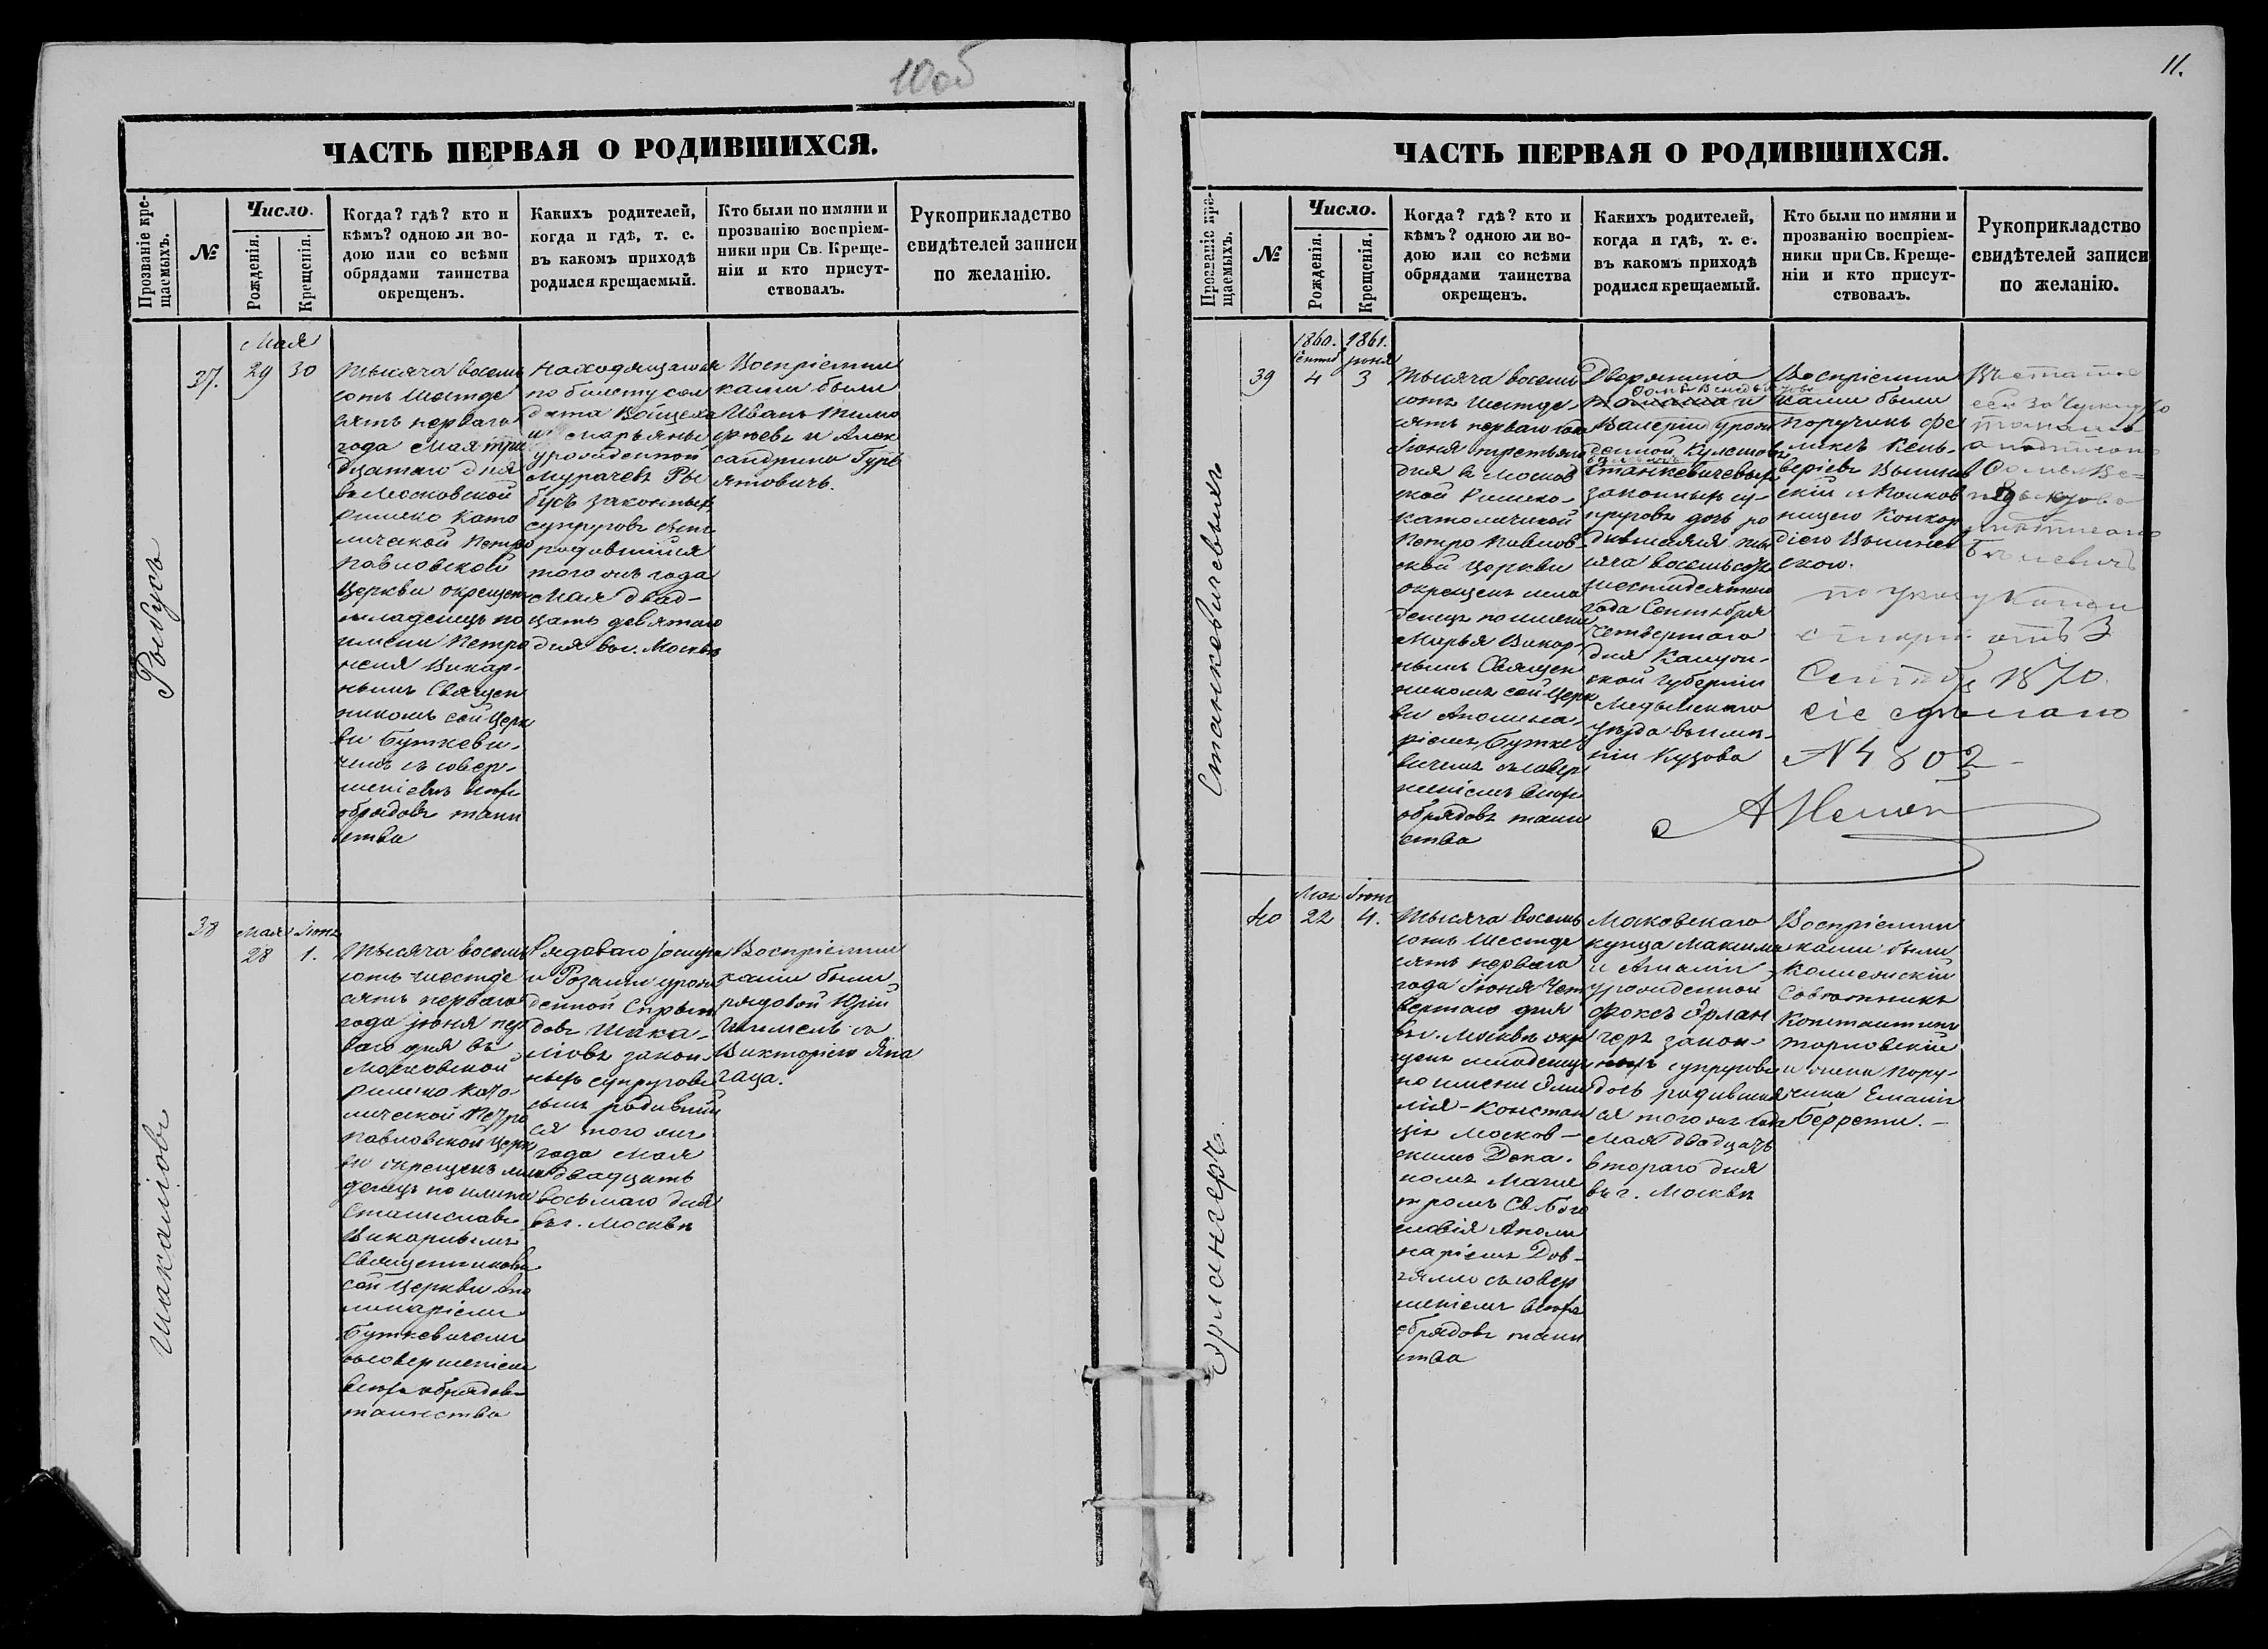 10об
ЧАСТЬ ПЕРВАЯ О РОДИВШИХСЯ.
Прозваніе кре-
щаемыхъ.
№
Число.
Рожденія.
Крещенія.
Когда? гдѣ? кто и
кѣмъ? одною ли во-
дою или со всѣми
обрядами таинства
окрещенъ.
Какихъ родителей,
когда и гдѣ, т. е.
въ какомъ приходѣ
родился крещаемый.
Кто были по имяни и
прозванію воспріем-
ники при Св. Креще-
ніи и кто присут-
ствовалъ.
Рукоприкладство
свидѣтелей записи
по желанію.
Рыбусъ
37.
Мая
29 30
Тысяча восемь
сотъ шестьде
сятъ перваго
года Мая три
дцатаго дня
въ Московской
Римско Като
лической Петро
Павловской
Церкви окрещенъ
младенецъ по
имени Петро
нелія Викар-
нымъ Священ
никомъ сей Церк
ви Буткеви-
чемъ съ совер-
шеніемъ всѣхъ
обрядовъ таин
ства
Находящагося
по билету сол
дата Войцеха
и Марьяны
урожденной
Мурачевъ Ры
бусъ законныхъ
супруговъ
родившійся
того же года
Мая двад-
цать девятаго
дня въ г. Москвѣ
Воспріемни
ками были
Иванъ Тимо
фѣевъ и Алек
сандрина Гуре
ятовичъ.
Шакаліовъ
38
Мая Іюня
28 1.
Тысяча восемь
сотъ шестьде
сятъ перваго
года іюня пер
ваго дня въ
Московской
Римско Като-
лической Петро
Павловской Церк
ви окрещенъ мла
денецъ по имени
Станиславъ
Викарнымъ
Священникомъ
сей Церкви Апо
линаріемъ
Буткевичемъ
съ совершеніемъ
всѣхъ обрядовъ
таинства
Рядоваго Іосифа
и Розаліи урож
денной Спрын
довъ Шака-
ліовъ закон-
ныхъ супруговъ
сынъ родивший
ся того же
года Мая
двадцать
восьмаго дня
въ г. Москвѣ
Воспріемни
ками были
рядовой Юрій
съ
Викторіею Яна
чаца.
11.
ЧАСТЬ ПЕРВАЯ О РОДИВШИХСЯ.
Прозваніе кре-
щаемыхъ.
№
Число.
Рожденія.
Крещенія.
Когда? гдѣ? кто и
кѣмъ? одною ли во-
дою или со всѣми
обрядами таинства
окрещенъ.
Какихъ родителей,
когда и гдѣ, т. е.
въ какомъ приходѣ
родился крещаемый.
Кто были по имяни и
прозванію воспріем-
ники при Св. Креще-
ніи и кто присут-
ствовалъ.
Рукоприкладство
свидѣтелей записи
по желанію.
Станкевичевыхъ
39
1860. 1861.
Сентяб іюня
4 3
Тысяча восемь
сотъ шестьде-
сятъ перваго года
Іюня третьяго
дня въ Москов
ской Римско-
католической
Петро Павлов-
ской Церкви
окрещенъ мла
денецъ по имени
Марья Викар-
нымъ Священ
никомъ сей Церк
ви Аполина-
ріемъ Бутке
вичемъ съ совер
шеніемъ всѣхъ
обрядовъ таин
ства
Дворянина
Валеріи урож
денной Кулешовъ
Станкевичевыхъ
законныхъ су-
пруговъ дочь ро
дившаяся ты
сяча восемьсотъ
шестидесятаго
года Сентября
четвертаго
дня Калуж-
ской Губерніи
Медынскаго
уѣзда въ имѣ-
ніи Кузова
Воспріемни
ками были
Поручикъ Фе
ликсъ Кель-
веріевъ Вышнев
скій и Полков
ницею Конкор
діею Вышнев
скою.
по указу Конси
сторіи отъ 3
Сентяб 1870
сіе сдѣлано
№ 4802
Эрлангеръ.
40
Мая Іюня
22 4.
Тысяча восемь
сотъ шестьде
сятъ перваго
года Іюня Чет
вертаго дня
въ г. Москвѣ окре
щенъ младенецъ
по имени Эми
лія-Констан
ція Москов-
скимъ Дека-
номъ Магис
тромъ Св. Бого
словія Аполи
наріемъ Дов-
гялло съ совер
шеніемъ всѣхъ
обрядовъ таин
ства
Московскаго
купца Максима
и Амаліи
урожденной
Фоксъ Эрлан
геръ закон-
ныхъ супруговъ
дочь родившая
ся того же года
Мая двадцать
втораго дня
въ г. Москвѣ
Воспріемни
ками были
Коллежскій
Совѣтникъ
Константинъ
Тарновскій
и жена Пору-
чика Емилія
Беррети.-